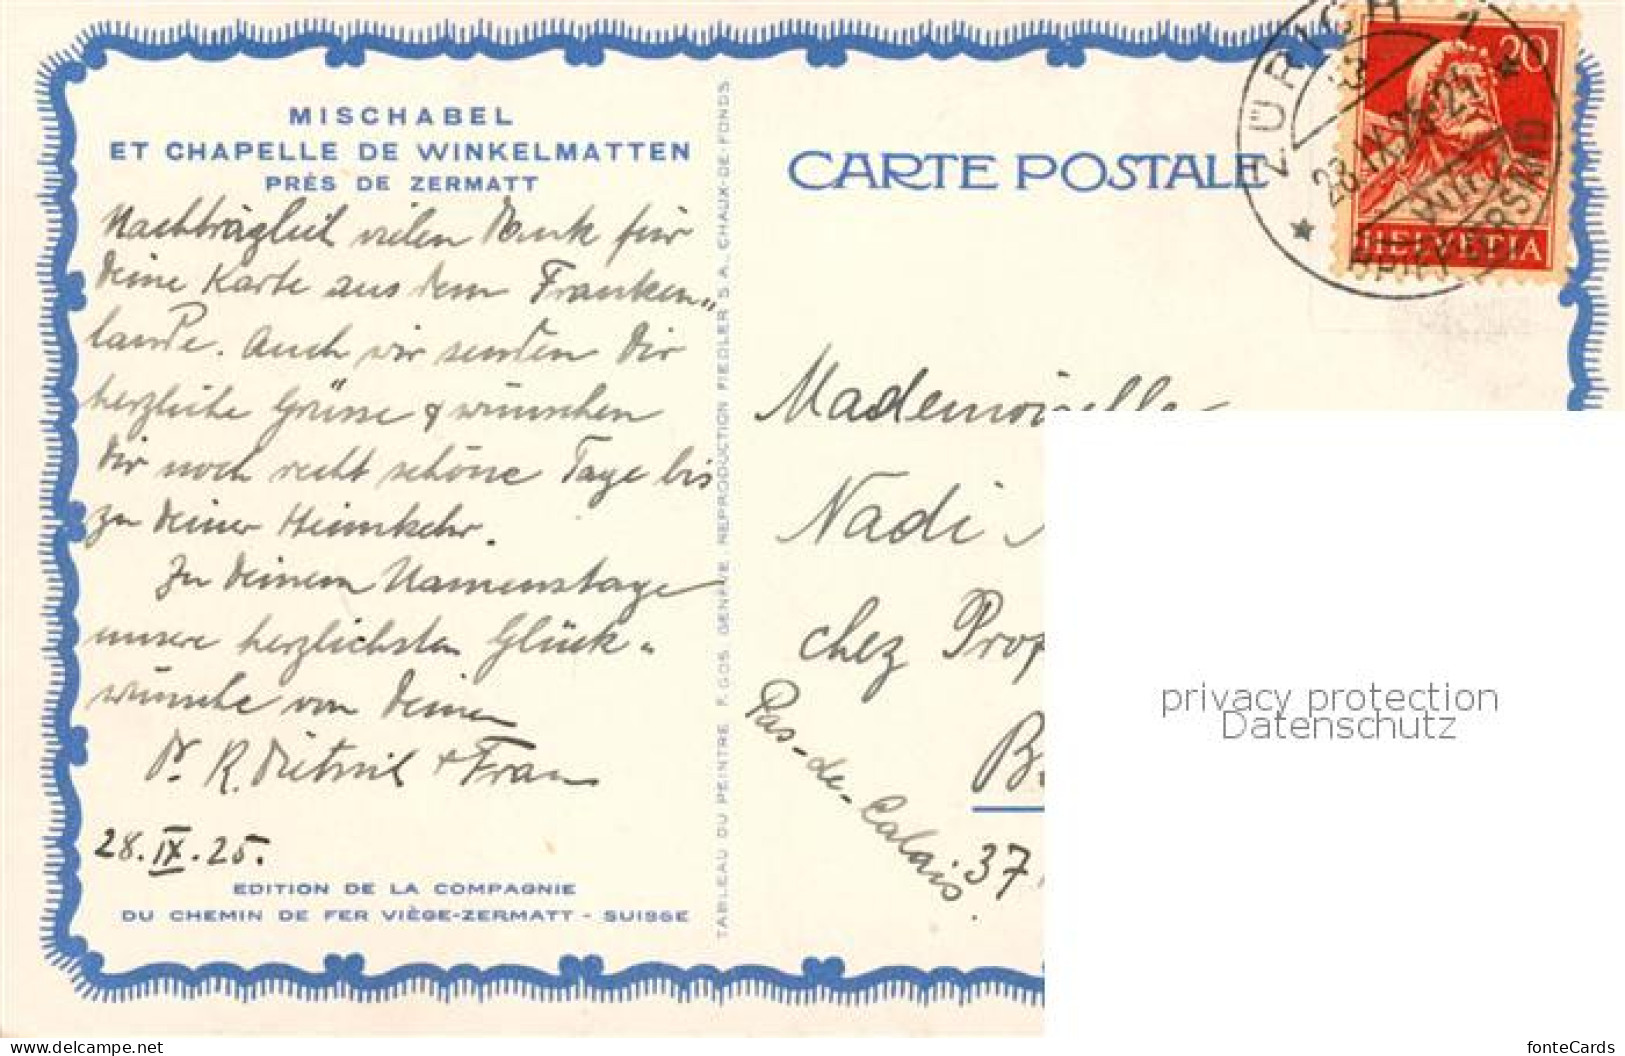 MISCHABEL
ET CHAPELLE DE WINKELMATTEN
PRÈS DE ZERMATT
Nachträglich vielen Dank für
deine Karte aus dem Franken„
lande. Auch wir senden Dir
herzliche Grüsse & wünschen
Dir noch recht schöne Tage bis
zu deiner Heimkehr.
Zu deinem Namenstage
unsere herzlichsten Glück„
wünsche von deinen
Dr. R. & Frau
28. IX. 25.
EDITION DE LA COMPAGNIE
DU CHEMIN DE FER VIÈGE-ZERMATT - SUISSE
TABLEAU DU PEINTRE F. GOS GENÈVE. REPRODUCTION FIEDLER S.A. CHAUX-DE-FONDS.
CARTE POSTALE
ZÜRICH 1
28.IX.25-24
BRIEFVERSAND
20
HELVETIA
Mademoiselle
Nadi
chez Prof
B
Pas-de-Calais.
37
privacy protection
Datenschutz
www.delcampe.net
fonteCards